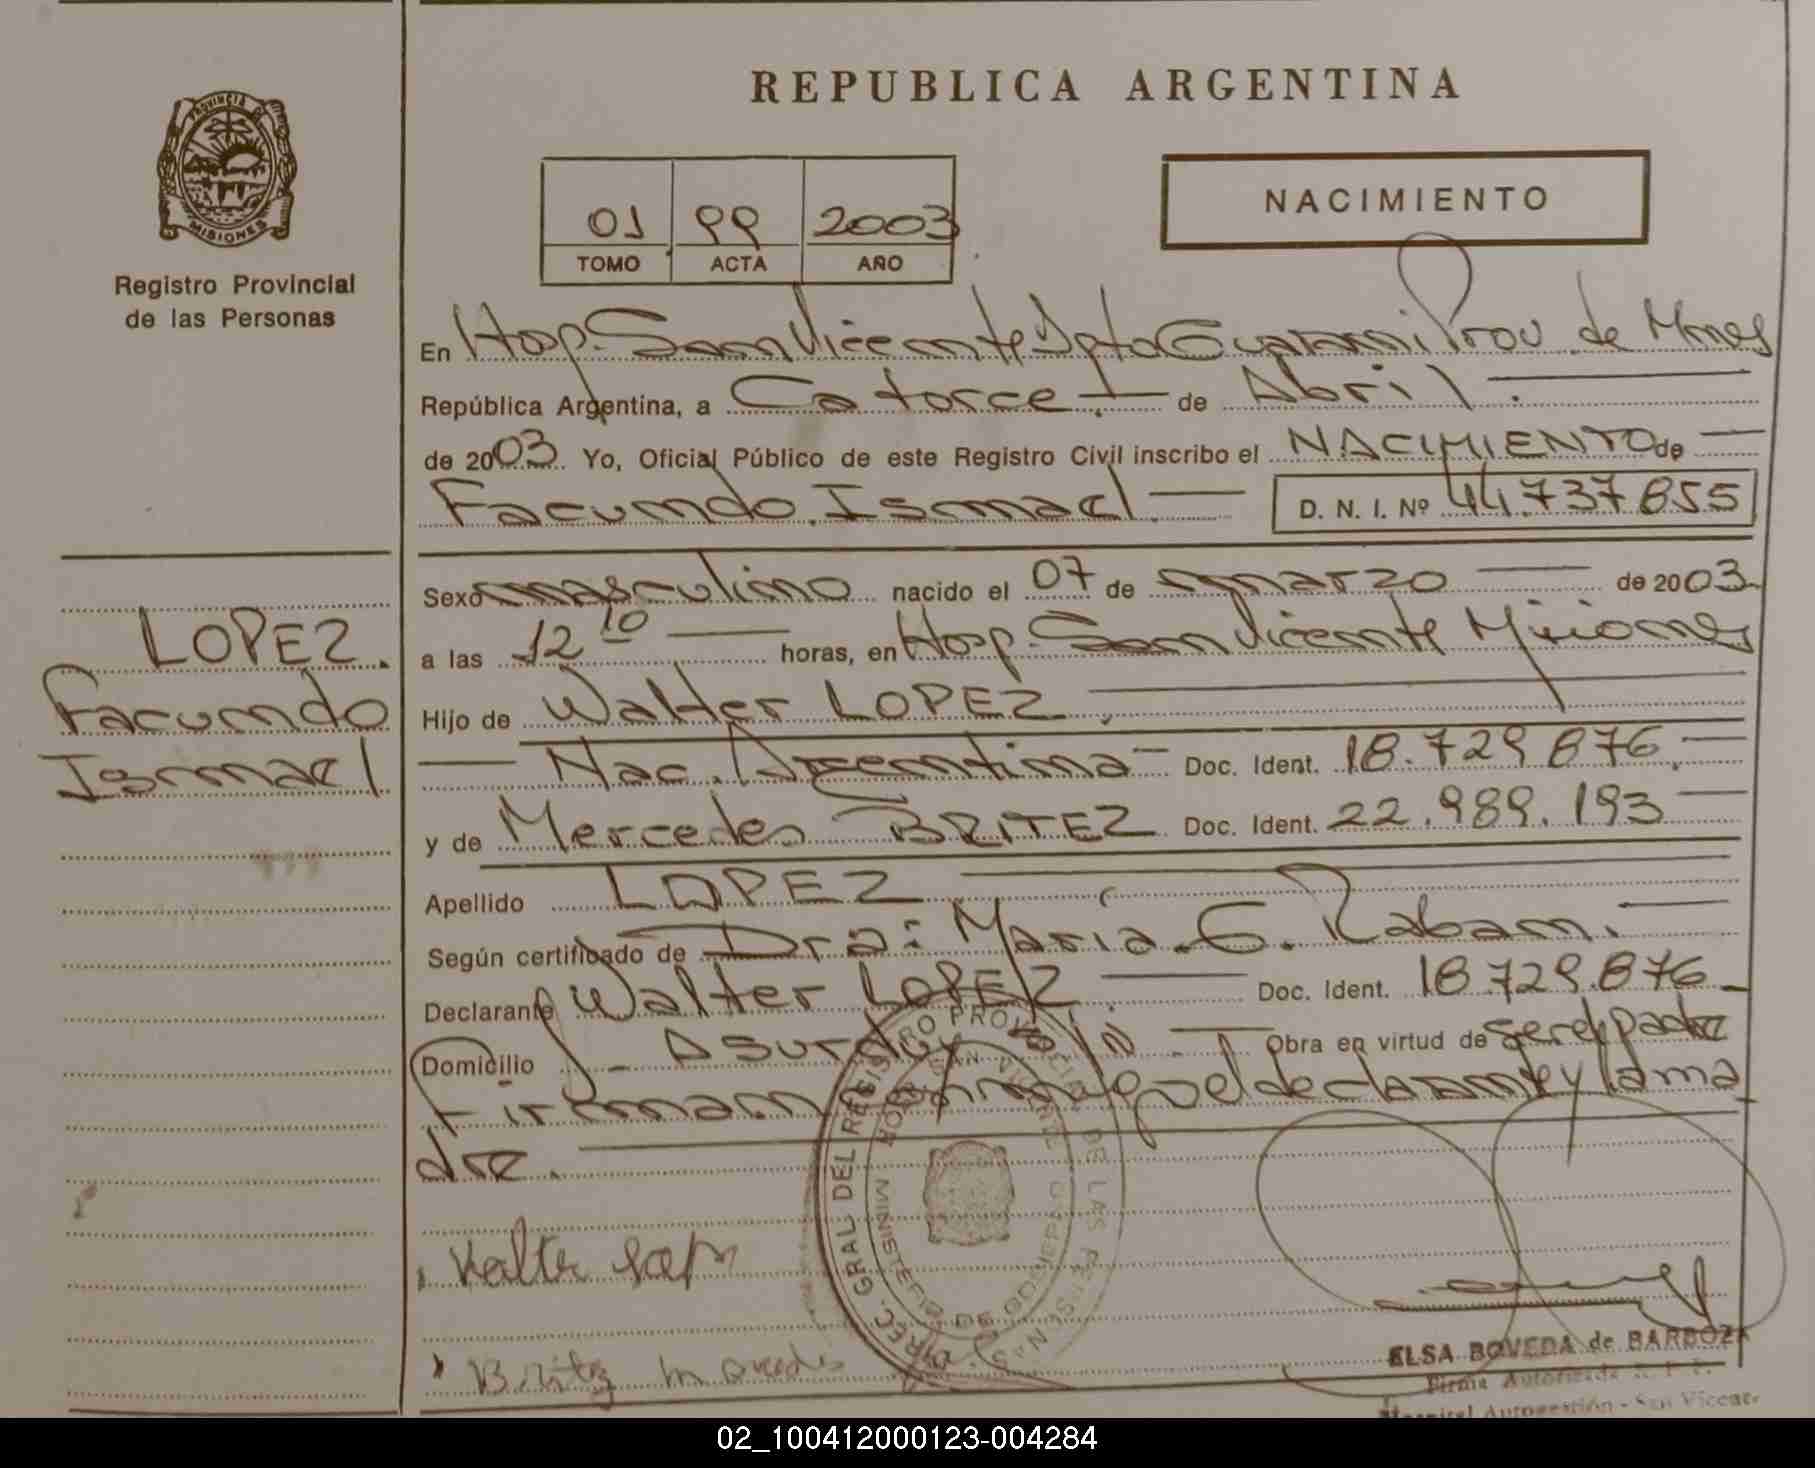 REPUBLICA ARGENTINA
PROVINCIA DE
MISIONES
Registro Provincial
de las Personas
01 99 2003
TOMO ACTA AÑO
NACIMIENTO
En Hosp. San Vicente Dpto Guarani Prov de Mnes
República Argentina, a Catorce de Abril.
de 2003. Yo, Oficial Público de este Registro Civil inscribo el NACIMIENTO de
Facundo Ismael D. N. I. Nº 44.737855
LOPEZ.
Facundo
Ismael
Sexo masculino nacido el 07 de marzo de 2003.
a las 12 10 horas, en Hosp. San Vicente Misiones
Hijo de Walter LOPEZ.
Nac. Argentina Doc. Ident. 18.729876.
y de Mercedes BRITEZ Doc. Ident. 22.989.193
Apellido LOPEZ
Según certificado de Dra: Maria. G. Raban.
Declarante Walter LOPEZ. Doc. Ident. 18.729.876
Domicilio Asurduy S/N. Obra en virtud de ser el padre
Firman el declarante y la ma
dre.
DIREC. GRAL DEL REGISTRO PROVINCIAL DE LAS PERSONAS
HOSP. SAN VICENTE
MINISTERIO DE GOBIERNO
Walter Lopez
Britez Mercedes
ELSA BOVEDA de BARBOZA
Firma Autorizada R. P. P.
Hospital Autogestión - San Vicente
02_100412000123-004284